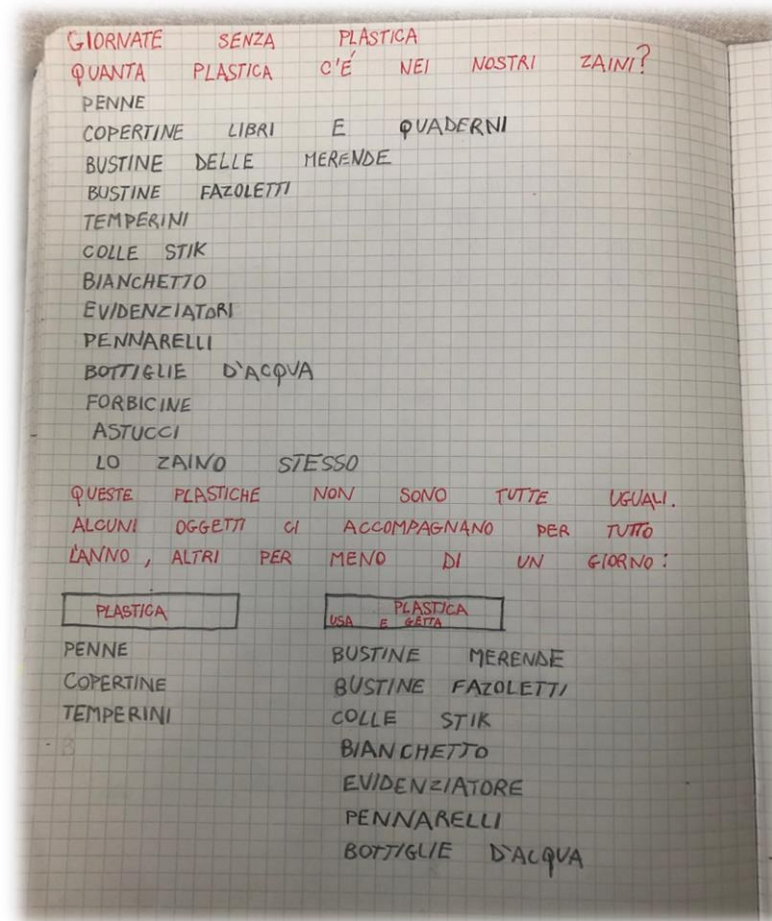 GIORNATE SENZA PLASTICA
QUANTA PLASTICA C'É NEI NOSTRI ZAINI?
PENNE
COPERTINE LIBRI E QUADERNI
BUSTINE DELLE MERENDE
BUSTINE FAZOLETTI
TEMPERINI
COLLE STIK
BIANCHETTO
EVIDENZIATORI
PENNARELLI
BOTTIGLIE D'ACQUA
FORBICINE
ASTUCCI
LO ZAINO STESSO
QUESTE PLASTICHE NON SONO TUTTE UGUALI.
ALCUNI OGGETTI CI ACCOMPAGNANO PER TUTTO
L'ANNO, ALTRI PER MENO DI UN GIORNO:
PLASTICA
PENNE
COPERTINE
TEMPERINI
PLASTICA
USA E GETTA
BUSTINE MERENDE
BUSTINE FAZOLETTI
COLLE STIK
BIANCHETTO
EVIDENZIATORE
PENNARELLI
BOTTIGLIE D'ACQUA